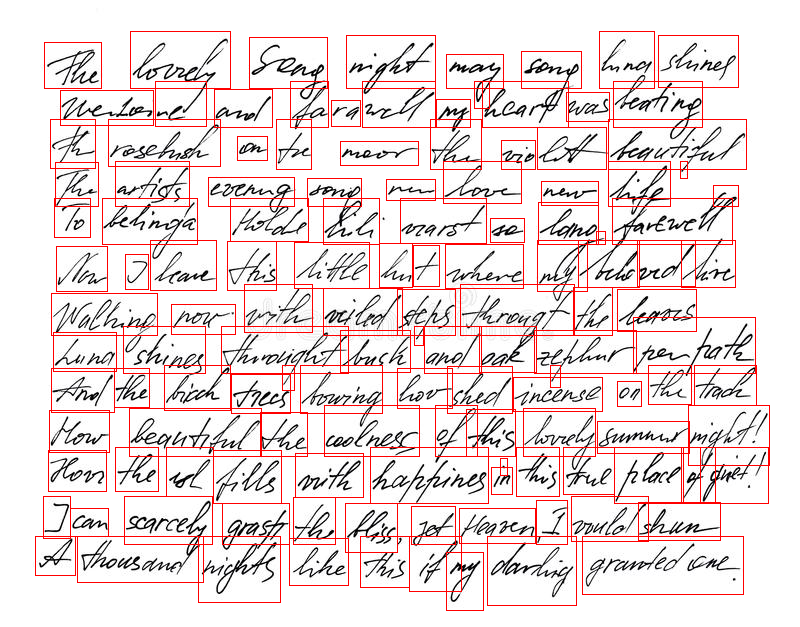 The lovely song night may song luna shines
Welcome and farawell my heart was beating
Th rosebush on tre moor the violett beautiful
The artists evening song new love new life
To belinga Holde lili warst so lano farewell
Now I leave this little hut where my beloved live
Walking now with veiled steps throught the leaves
Luna shines throught bush and oak zephur per path
And the birch trees bowing how shed incense on the track
How beautiful the coolness of this lovely summer night!
How the soul fills with happiness in this true place of quiet!
I can scarcely grasp the bliss, yet Heaven, I would shun
A thousand nights like this if my darling granted one.